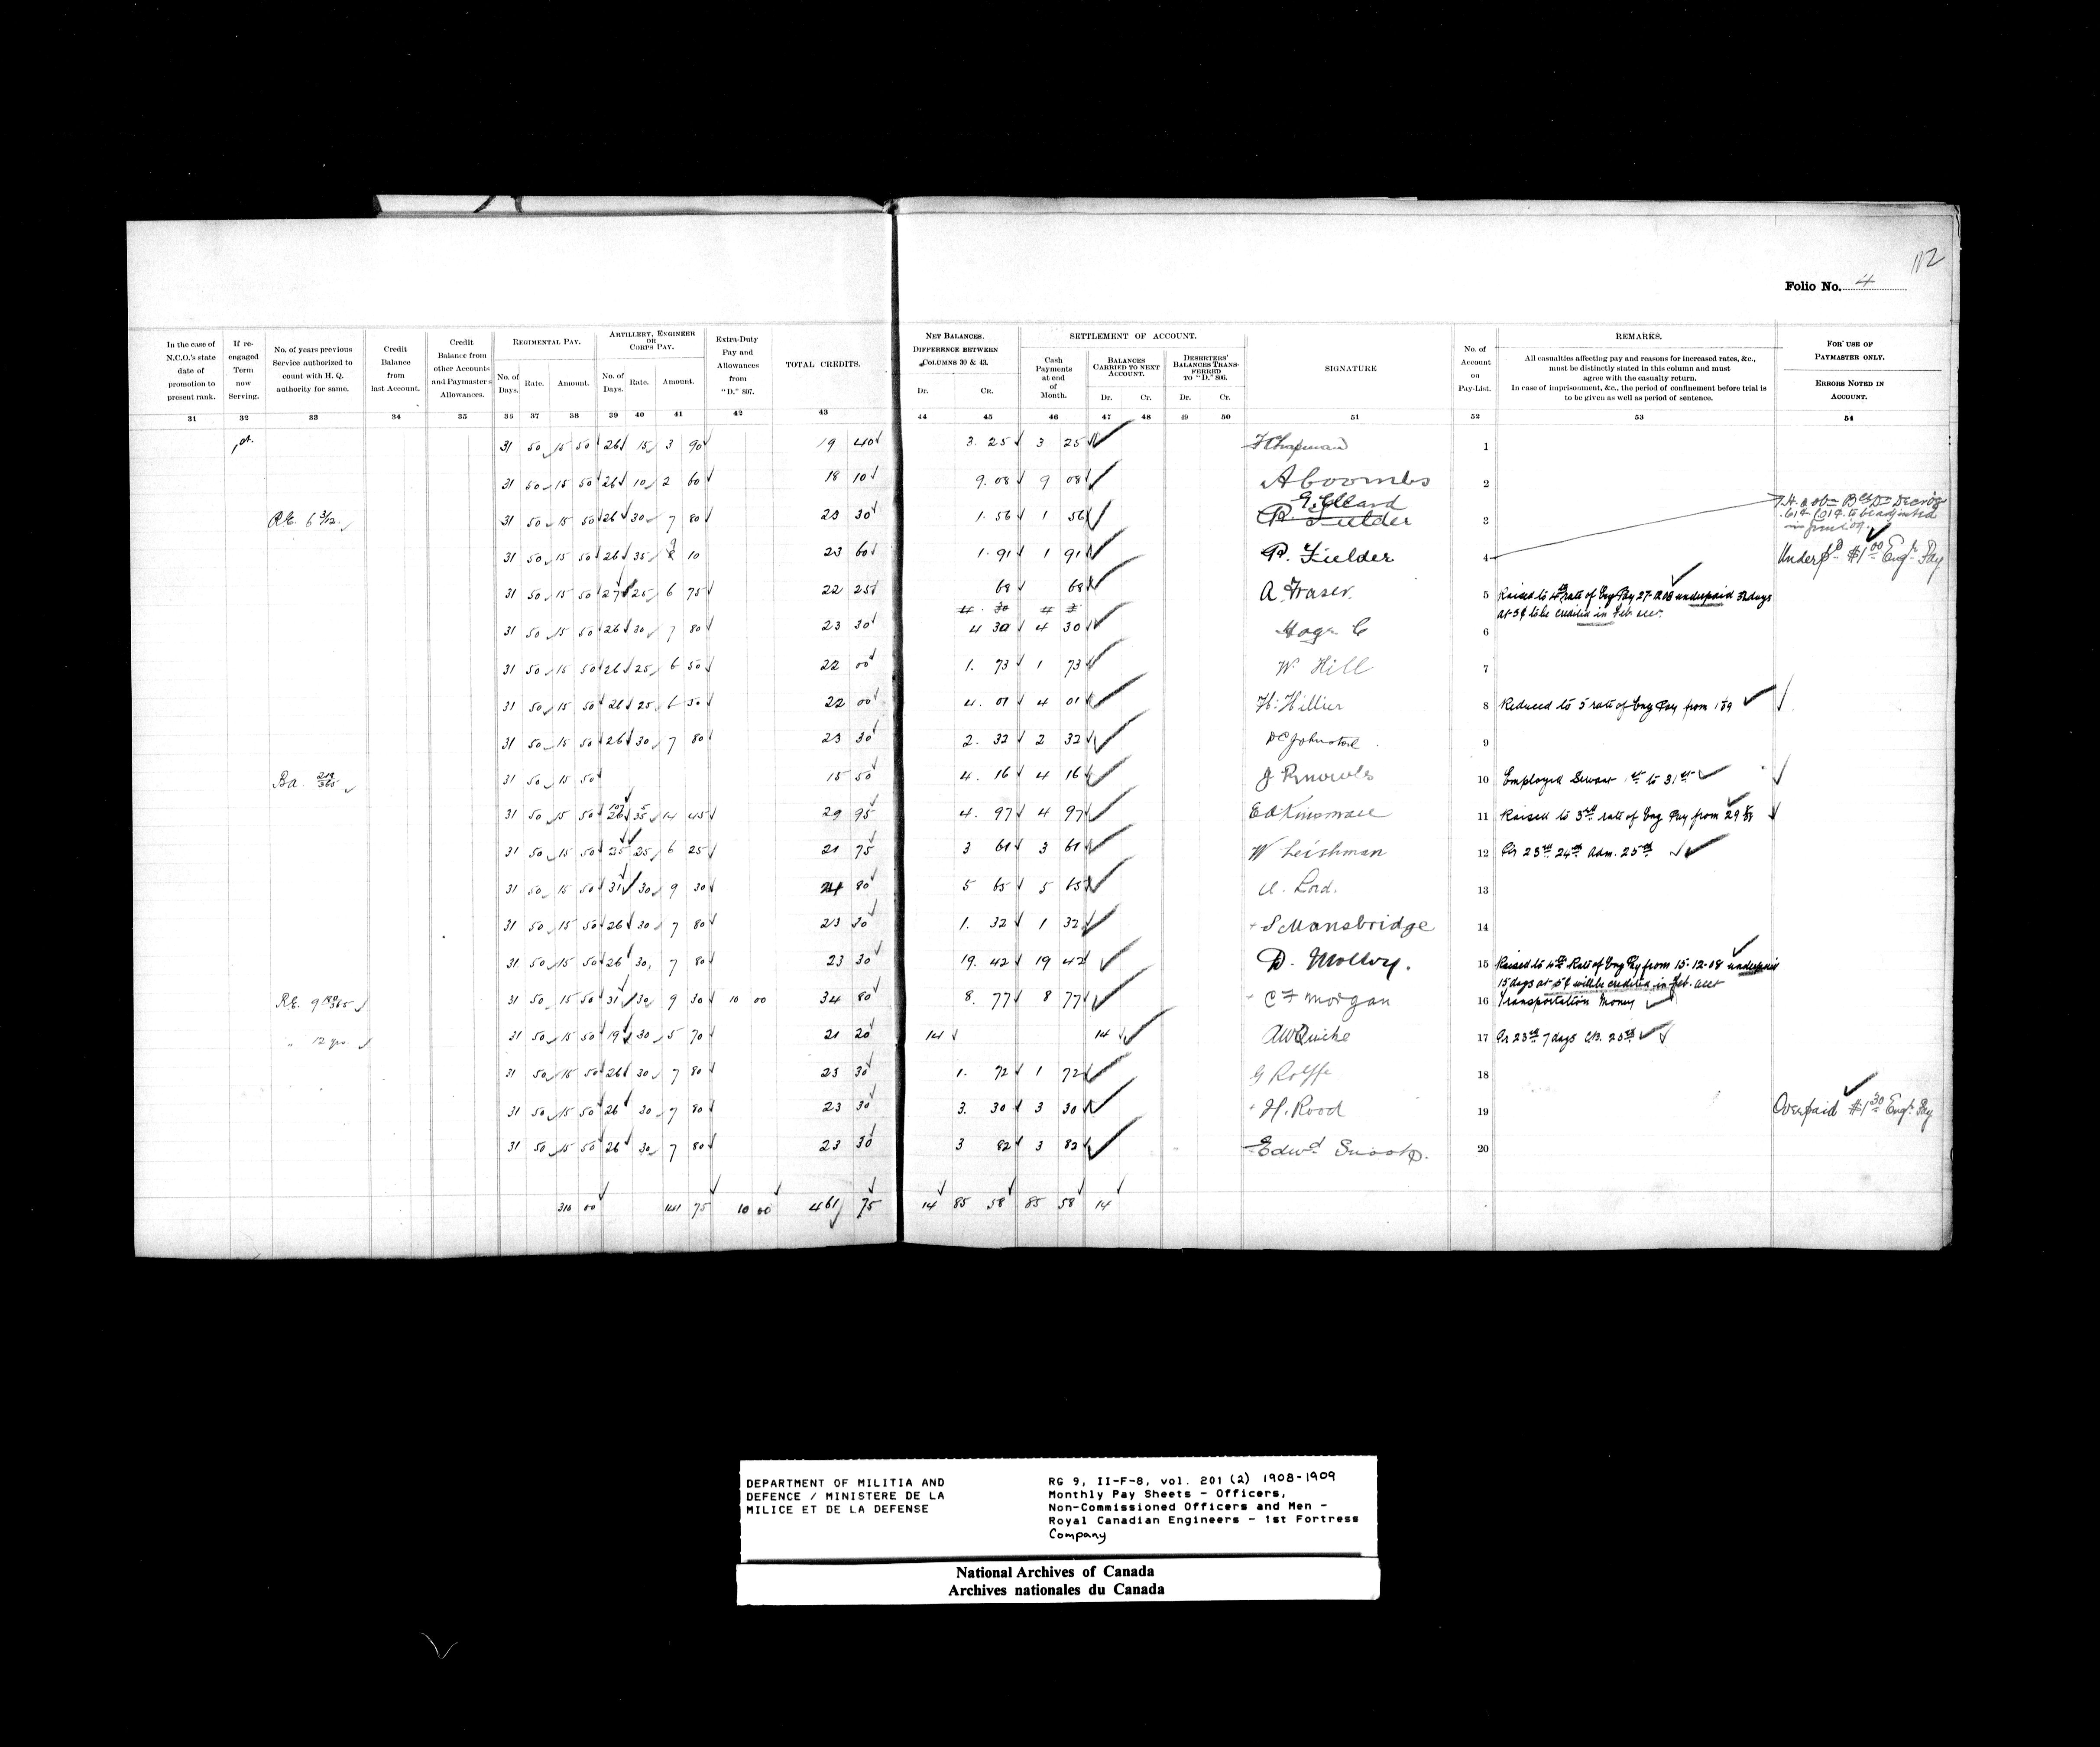 112
Folio No. 4
In the case of N.C.O.'s state date of promotion to present rank.
If re-engaged Term now Serving.
No. of years previous Service authorized to count with H. Q. authority for same.
Credit Balance from last Account.
Credit Balance from other Accounts and Paymasters Allowances.
REGIMENTAL PAY.
No. of Days. Rate. Amount.
ARTILLERY, ENGINEER OR CORPS PAY.
No. of Days. Rate. Amount.
Extra-Duty Pay and Allowances from "D." 807.
TOTAL CREDITS.
NET BALANCES.
DIFFERENCE BETWEEN COLUMNS 30 & 43.
Dr. Cr.
SETTLEMENT OF ACCOUNT.
Cash Payments at end of Month.
BALANCES CARRIED TO NEXT ACCOUNT.
Dr. Cr.
DESERTERS' BALANCES TRANSFERRED TO "D." 806.
Dr. Cr.
SIGNATURE
No. of Account on Pay-List.
REMARKS.
All casualties affecting pay and reasons for increased rates, &c., must be distinctly stated in this column and must agree with the casualty return.
In case of imprisonment, &c., the period of confinement before trial is to be given as well as period of sentence.
FOR USE OF PAYMASTER ONLY.
ERRORS NOTED IN ACCOUNT.
31 32 33 34 35 36 37 38 39 40 41 42 43 44 45 46 47 48 49 50 51 52 53 54
31 50 15 50 26 15 3 90 19 40 3. 25 3 25 F Chapman 1
31 50 15 50 26 10 2 60 18 10 9. 08 9 08 A Coombs 2
R.E. 6 3/12 31 50 15 50 26 30 7 80 23 30 1. 56 1 56 G. Ellard P. Fielder 3
to be adjusted
31 50 15 50 26 35 9 10 23 60 1. 91 1 91 P. Fielder 4 Underpd $1 00 Engr Pay
31 50 15 50 27 25 6 75 22 25 68 68 A. Fraser. 5 Raised to 4th rate of Eng Pay 27-12-08 underpaid days
at 5¢ to be credited in Feb acct.
4. 30 4
31 50 15 50 26 30 7 80 23 30 4 30 4 30 C 6
31 50 15 50 26 25 6 50 22 00 1. 73 1 73 W. Hill 7
31 50 15 50 26 25 6 50 22 00 4. 01 4 01 H. Hillier 8 Reduced to 5 rate of Eng Pay from
31 50 15 50 26 30 7 80 23 30 2. 32 2 32 D C Johnston 9
31 50 15 50 15 50 4. 16 4 16 J Knowles 10 Employed Servant 1st to 31st
31 50 15 50 26 35 14 45 29 95 4. 97 4 97 E A Kinsman 11 Raised to 3rd rate of Eng Pay from 29
31 50 15 50 25 25 6 25 21 75 3 61 3 61 W Leishman 12 Pr 23rd 24th adm. 25th
31 50 15 50 31 30 9 30 24 80 5 65 5 65 Lord. 13
31 50 15 50 26 30 7 80 23 30 1. 32 1 32 S Mansbridge 14
31 50 15 50 26 30 7 80 23 30 19. 42 19 42 D. Molloy. 15 Raised to 4th Rate of Eng Pay from 15-12-08 underpaid
15 days at 5¢ will be credited in Feb. acct
R.E. 9 31 50 15 50 31 30 9 30 10 00 34 80 8. 77 8 77 C F Morgan 16 Transportation Money
" 12 yrs. 31 50 15 50 19 30 5 70 21 20 14 14 A W Quicke 17 Pr 23rd 7 days C.B. 25th
31 50 15 50 26 30 7 80 23 30 1. 72 1 72 G Rolffe 18
31 50 15 50 26 30 7 80 23 30 3. 30 3 30 H. Rood 19 Overpaid $1 30 Engr Pay
31 50 15 50 26 30 7 80 23 30 3 82 3 82 Edwd 20
310 00 141 75 10 00 461 75 14 85 58 85 58 14
DEPARTMENT OF MILITIA AND
DEFENCE / MINISTERE DE LA
MILICE ET DE LA DEFENSE
RG 9, II-F-8, vol. 201 (2) 1908-1909
Monthly Pay Sheets - Officers,
Non-Commissioned Officers and Men -
Royal Canadian Engineers - 1st Fortress
Company
National Archives of Canada
Archives nationales du Canada